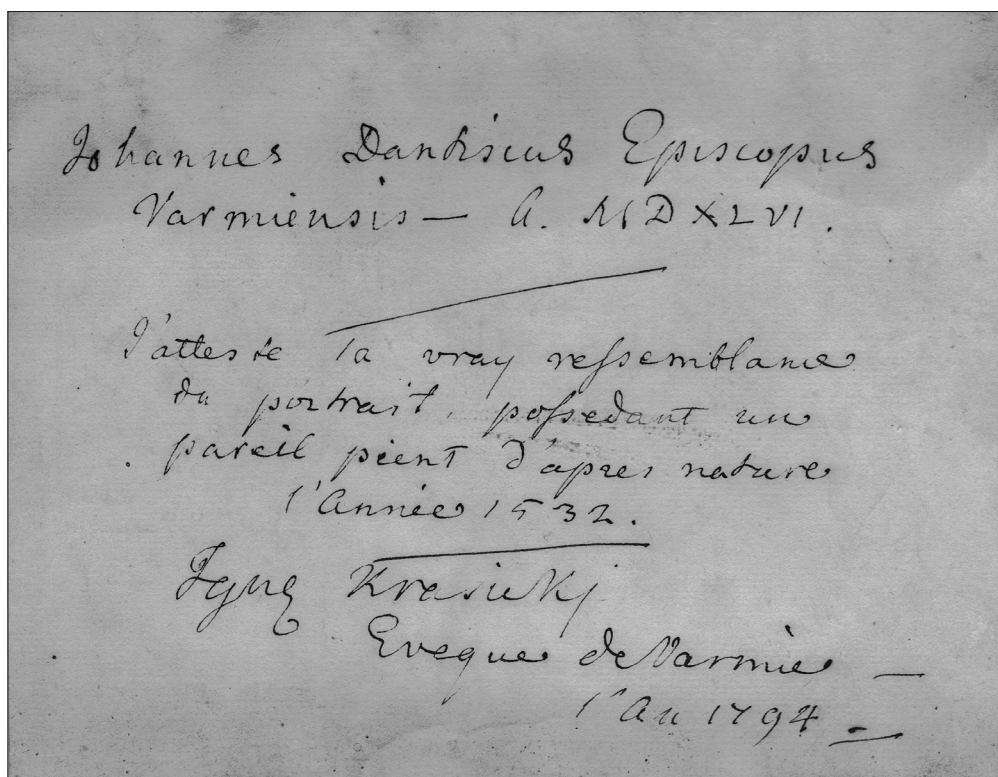 Johannes Dantiscus Episcopus
Varmiensis — A. MDXLVI.
J'atteste la vray ressemblance
du portrait, possedant un
pareil peint d'apres nature
l'Année 1532.
Ignæ Krasickj
Eveque de Varmie —
l'An 1794 —